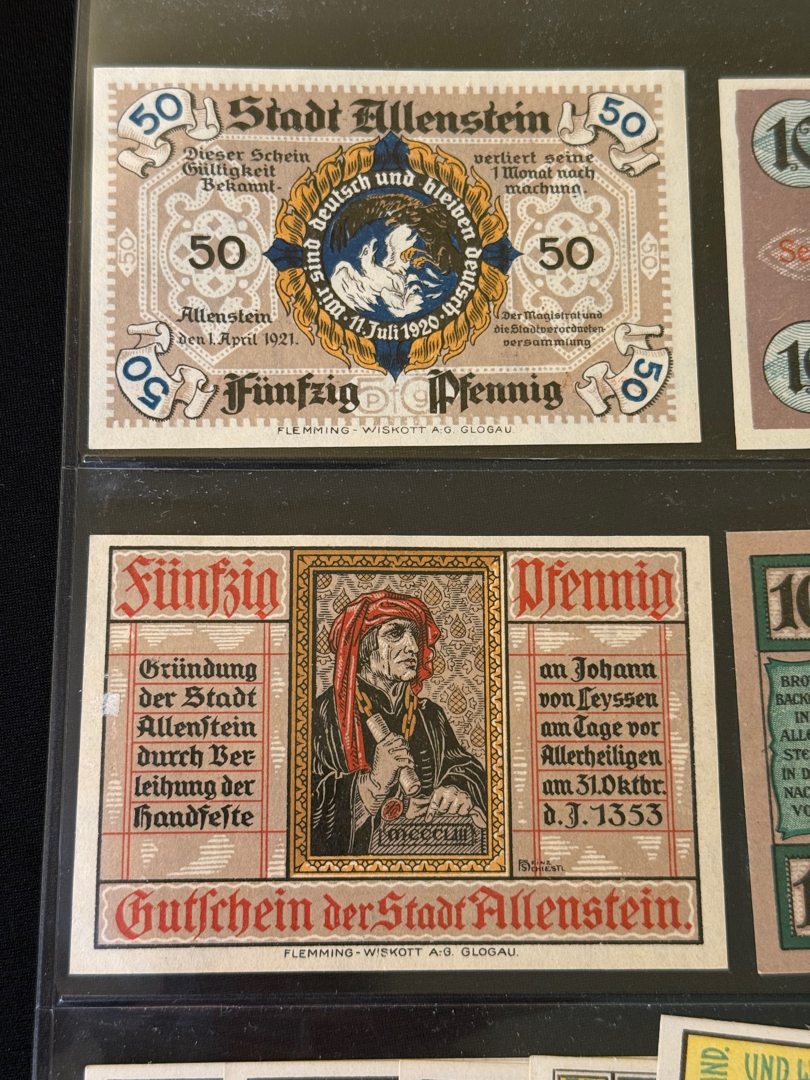 50
Stadt Allenstein
50
Dieser Schein verliert seine
Gültigkeit 1 Monat nach
Bekannt- machung.
wir sind deutsch und bleiben deutsch
11. Juli 1920
50
50
50
50
Allenstein
den 1. April 1921.
Der Magistrat und
die Stadtverordneten-
versammlung
50
50
Fünfzig Pfennig
FLEMMING - WISKOTT A:G. GLOGAU.
Fünfzig
Pfennig
Gründung
der Stadt
Allenstein
durch Ver-
leihung der
Handfeste
an Johann
von Leyssen
am Tage vor
Allerheiligen
am 31. Oktbr.
d. J. 1353
MCCCLIII
HEINZ
SCHIESTL
Gutschein der Stadt Allenstein.
FLEMMING - WISKOTT A:G. GLOGAU.
10
BACK
IN
ALLE
IN D
NAC
UND